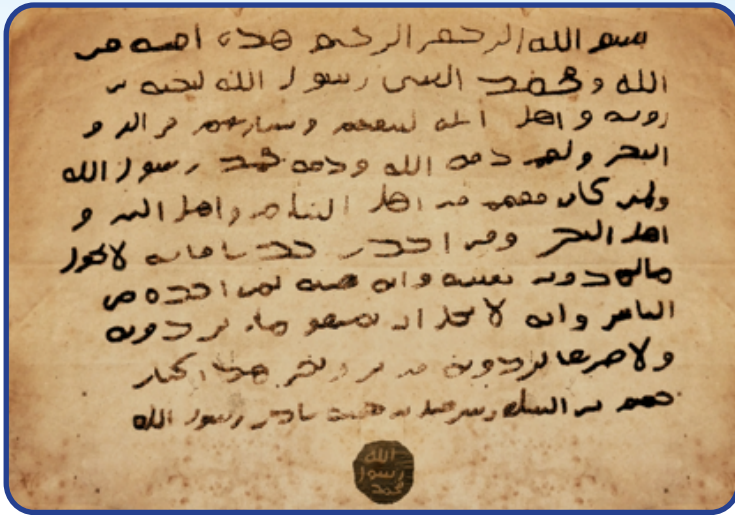 بسم الله الرحمن الرحيم هذه امنة من
الله و محمد النبي رسول الله ليحنه بن
روبه و اهل ايله لسفنهم و سيارتهم في البر و
البحر ولهم ذمة الله وذمة محمد رسول الله
ولمن كان معهم من اهل الشام واهل اليمن و
اهل البحر ومن احدث حدثا فانه لا يحول
ماله دون نفسه وانه طيبه لمن اخذه من
الناس وانه لا يحل ان يمنعو ماء يردونه
ولا طريقا يردونه من بر وبحر هذا كتاب
جهيم بن الصلت وشرحبيل بن حسنة باذن رسول الله
الله
رسول
محمد